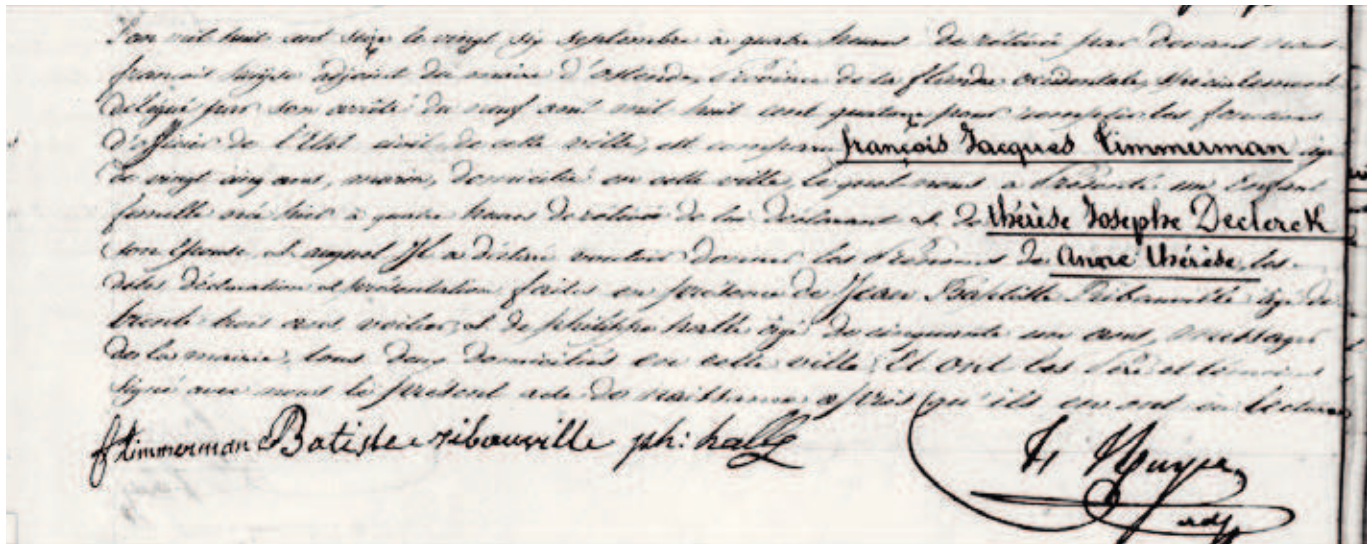 L'an mil huit cent seize le vingt six septembre à quatre heures de relevée par devant nous
françois adjoint du maire d'ostende, province de la flandre occidentale, spécialement
délégué par son arrêté du neuf août mil huit cent quatorze pour remplir les fonctions
d'officier de l'Etat civil de cette ville, est comparu françois Jacques Timmerman âgé
de vingt cinq ans, marin, domicilié en cette ville, lequel nous a Présenté un Enfant
femelle née hier à quatre heures de relevée de lui déclarant et de thérèse Josephe Declerck
son Epouse et auquel Il a déclaré vouloir donner les Prénoms de Anne thérèse, les
dites déclaration et présentation faites en présence de Jean Baptiste Ribauville âgé de
trente trois ans voilier, et de philippe halle âgé de cinquante un ans, messager
de la mairie, tous deux domiciliés en cette ville, Et ont les Père et témoins
signé avec nous le présent acte de naissance après qu'ils en ont eu lecture
f timmerman Batiste ribauville ph: halle